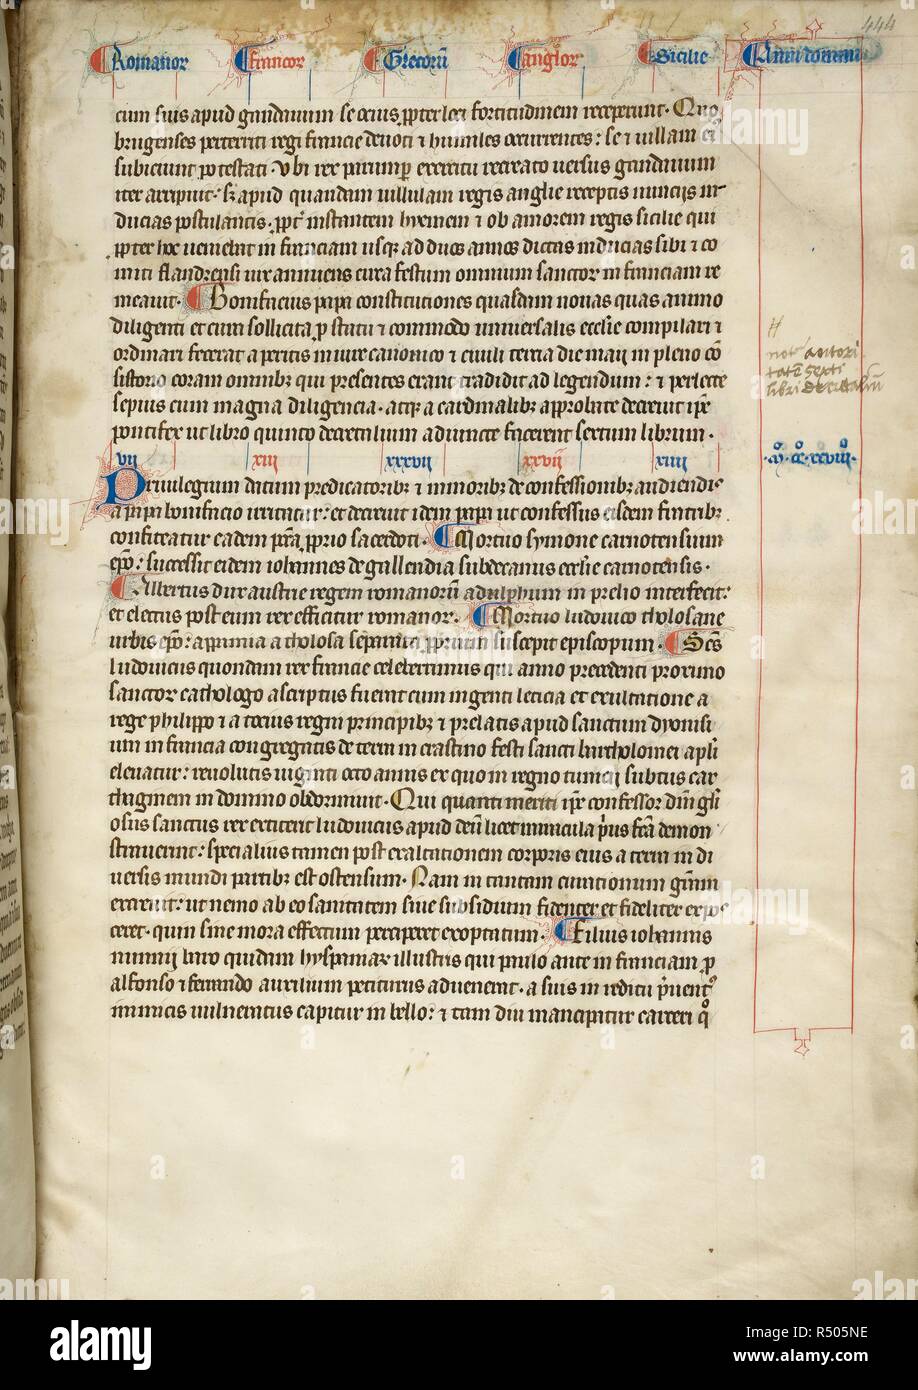 444
Romanor Francor Grecorū anglor Sicilie Anni domini
cum suis apud gandauum se ocius ꝓpter loci fortitudinem receperunt. Quo
brugenses perterriti regi francie deuoti ⁊ humiles occurrentes: se ⁊ uillam ei
subiciunt potestati. Vbi rex parumꝑ exercitu recreato uersus gandauum
iter arripuit: sꝫ apud quandam uillulam regis anglie receptis nuncijs in
ducias postulantis. ꝓpt instantem hyemem ⁊ ob amorem regis sicilie qui
ꝓpter hoc uenebat in franciam usqꝫ ad duos annos dictas inducias sibi ⁊ co
miti flandrensi uix annuens circa festum omnium sanctor in franciam re
meauit. Bonifacius papa constitutiones quasdam nouas quas animo
diligenti et cum sollicita ꝓ statu ⁊ commodo uniuersalis ecclie compilari ⁊
ordinari fecerat a peritis in iure canonico ⁊ ciuili tercia die maij in pleno cō
sistorio coram omnibꝫ qui presentes erant tradidit ad legendum: ⁊ perlecte
sepius cum magna diligencia. atqꝫ a cardinalibꝫ approbate decreuit ipse
pontifex ut libro quinto decretalium adiuncte facerent sextum librum.
not autori
tatē sexti
libri decretaliū
vij xiij xxxvij xxvij xiiij .mº. ccº. xcviijº.
Priuilegium datum predicatoribꝫ ⁊ minoribꝫ de confessionibꝫ audiendis
a papa bonifacio irritatur: et decreuit idem papa ut confessus eisdem fratribꝫ
confiteatur eadem pctā ꝓprio sacerdoti. Mortuo symone carnotensium
epō: successit eidem iohannes de gallendia subdecanus ecclie carnotensis.
Albertus dux austrie regem romanorū adulphum in prelio interfecit:
et electus post eum rex efficitur romanor. Mortuo ludouico tholosane
urbis epō: appamia a tholosa separata ꝓprium suscepit episcopum. Scs
ludouicus quondam rex francie celeberrimus qui anno precedenti proximo
sanctor cathologo ascriptus fuerat cum ingenti leticia et exultatione a
rege philippo ⁊ a tocius regni principibꝫ ⁊ prelatis apud sanctum dyonisi
um in francia congregatis de terra in crastino festi sancti bartholomei apli
eleuatur: reuolutis uiginti octo annis ex quo in regno tunicij subtus car
thaginem in domino obdormiuit. Qui quanti meriti ipse confessor dn̄i gli
osus sanctus rex extiterit ludouicus apud deū licet miracula prius fcā demon
strauerint: specialius tamen post exaltationem corporis eius a terra in di
uersis mundi partibꝫ est ostensum. Nam in tantam curationum gratiam
excreuit: ut nemo ab eo sanitatem siue subsidium fidenter et fideliter expos
ceret. quin sine mora effectum perciperet exoptatum. Filius iohannis
nunnij baro quidam hyspaniar illustris qui paulo ante in franciam ꝓ
alfonso ⁊ ferando auxilium petiturus aduenerat. a suis in reditu preuentꝰ
inimicis uulneratus capitur in bello: ⁊ tam diu mancipatur carceri qº
alamy
Image ID: R505NE
www.alamy.com